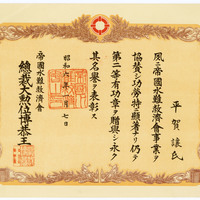 平賀讓氏
風ニ帝國水難救濟會事業ヲ
協賛シ功勞特ニ顯著ナリ仍テ
第二等有功章ヲ贈與シ永ク
其名譽ヲ表彰ス
昭和六年 月 七日
帝國水難救濟會
總裁大勲位博恭王